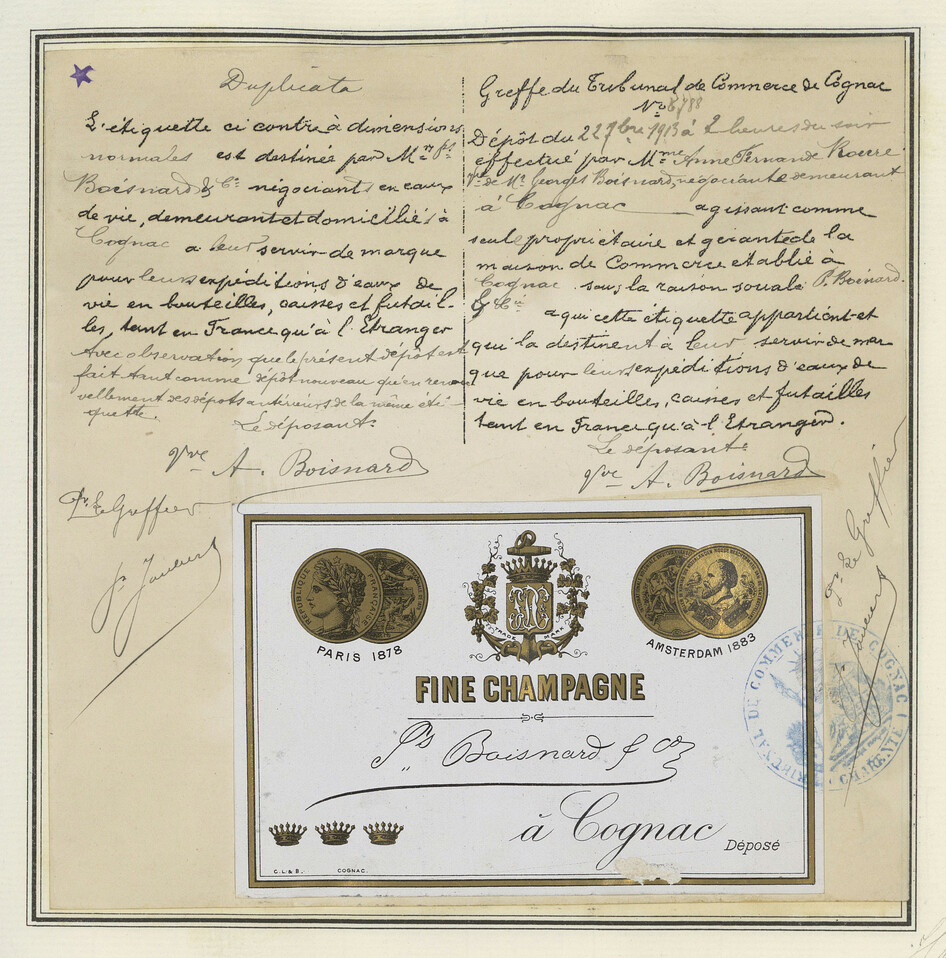 Duplicata
L'étiquette ci contre à dimensions
normales est destinée par Mrs Ps
Boisnard & Cie négociants en eaux
de vie, demeurant et domiciliés à
Cognac a leur servir de marque
pour leurs expéditions d'eaux de
vie en bouteilles, caisses et futail-
les, tant en France qu'à l'Etranger
Avec observation que le présent dépôt est
fait tant comme dépôt nouveau qu'en renou
vellement des dépôts antérieurs de la même éti-
quette.
Le déposant.
Vve A. Boisnard
Pr Le Greffier
Greffe du Tribunal de Commerce de Cognac
No 8788
Dépôt du 22 7bre 1913 à 2 heures du soir
effectué par Mme Anne Fernande
Vve de Mr Georges Boisnard, négociante demeurant
à Cognac agissant comme
seule propriétaire et gérante de la
maison de Commerce etablie à
Cognac sous la raison sociale P. Boisnard.
& Cie a qui cette étiquette appartient et
qui la destinent à leur servir de mar
que pour leurs expéditions d'eaux de
vie en bouteilles, caisses et futailles
tant en France qu'à l'Etranger.
Le déposant.
Vve A. Boisnard
Pr Le Greffier
RÉPUBLIQUE FRANÇAISE
PARIS 1878
TRADE MARK
AMSTERDAM 1883
FINE CHAMPAGNE
Ps Boisnard & Co
à Cognac
Déposé
C.L.& B. COGNAC.
TRIBUNAL DE COMMERCE DE COGNAC (CHARENTE)